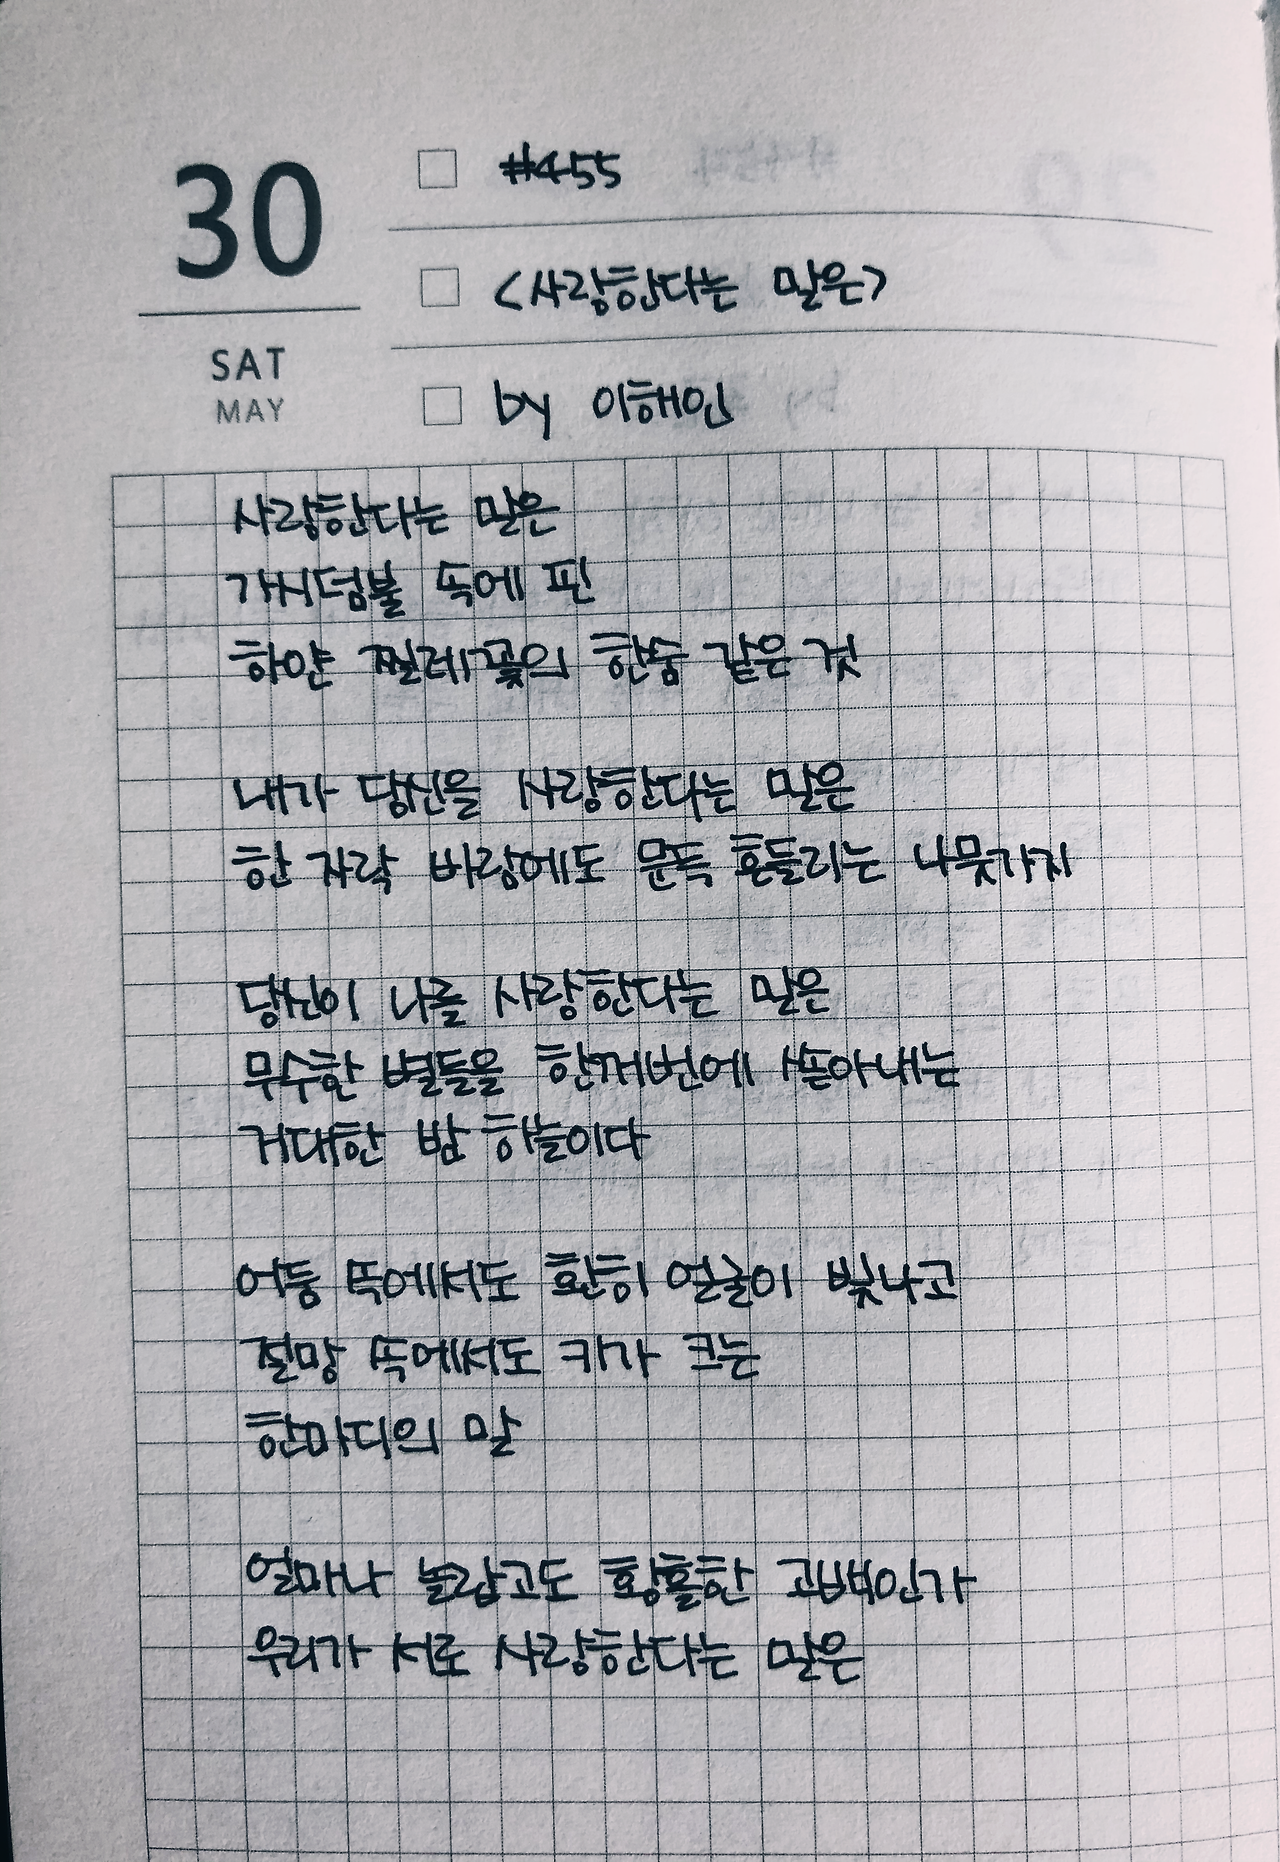 30
SAT
MAY
#455
<사랑한다는 말은>
by 이해인
사랑한다는 말은
가시덤불 속에 핀
하얀 찔레꽃의 한숨 같은 것
내가 당신을 사랑한다는 말은
한 자락 바람에도 문득 흔들리는 나뭇가지
당신이 나를 사랑한다는 말은
무수한 별들을 한꺼번에 쏟아내는
거대한 밤 하늘이다
어둠 속에서도 환히 얼굴이 빛나고
절망 속에서도 키가 크는
한마디의 말
얼마나 놀랍고도 황홀한 고백인가
우리가 서로 사랑한다는 말은